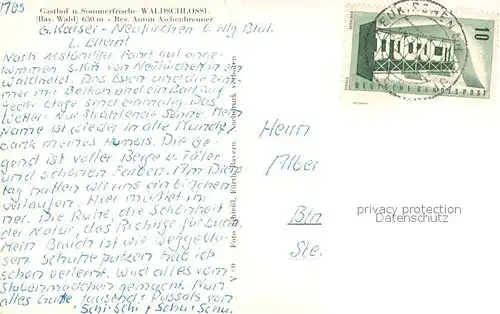 1765
Gasthof u. Sommerfrische WALDSCHLÖSSL
(Bay. Wald) 630 m - Bes. Anton Aschenbrenner
G. Kaiser - Neukirchen b. Hlg Blut.
L. Eltern!
Nach 12stündiger Fahrt gut ange-
kommen. 6 Km von Neukirchen im
Waldhotel. Das Essen und die Zim-
mer mit Balkon und ein Bad auf
jeder Etage sind einmalig. Das
Wetter: Nur strahlende Sonne. Mein
Name ist wieder in alle Munde
dank meines Humors. Die Ge-
gend ist voller Berge u. Täler
und schönen Farben. Am Diens
tag hatten wir uns ein bischen
verlaufen. Hier müsstet ihr
her. Die Ruhe, die Schönheit
der Natur, das Richtige für Euch.
Mein Bauch ist wie weggebla-
sen. Schuhe putzen hab ich
schon verlernt. Wird alles vom
Stubenmädchen gemacht. Nun
alles Gute tausend Pussals von
Schi-Schi + Schu-Schu.
Foto Schießl, Fürth/Bayern. Nachdruck verboten
V
DEUTSCHE BUNDESPOST
10
NEUKIRCHEN
Herrn
Alber
Bln
Ste
privacy protection
DatenSchutz